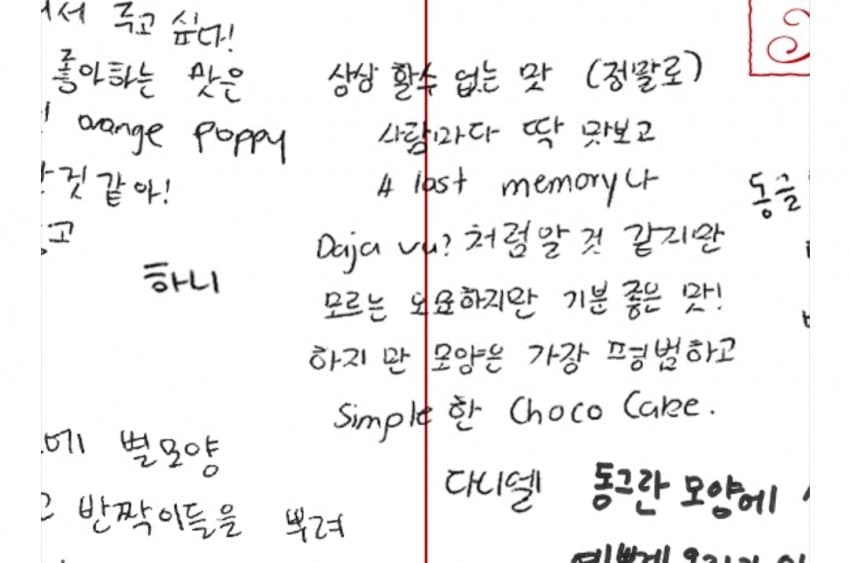 서 주고 싶다!
좋아하는 맛은
orange poppy
것 같아!
고
하니
에 별모양
고 반짝이들을 뿌려
상상 할수 없는 맛 (정말로)
사람마다 딱 맛보고
A lost memory나
Daja vu? 처럼알 것 같지만
모르는 오묘하지만 기분 좋은 맛!
하지만 모양은 가장 평범하고
Simple 한 Choco Cake.
다니엘
동글
동그란 모양에